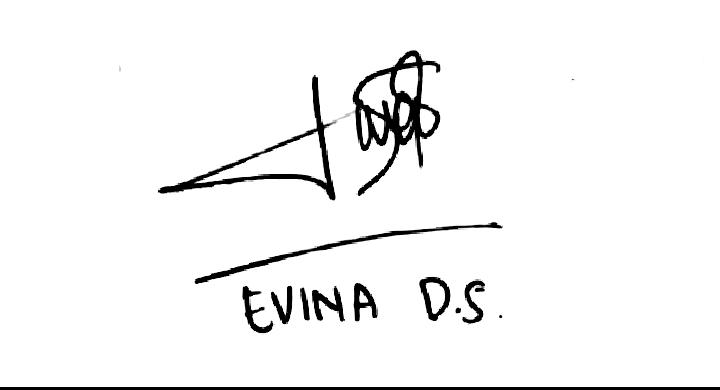 EVINA D.S.